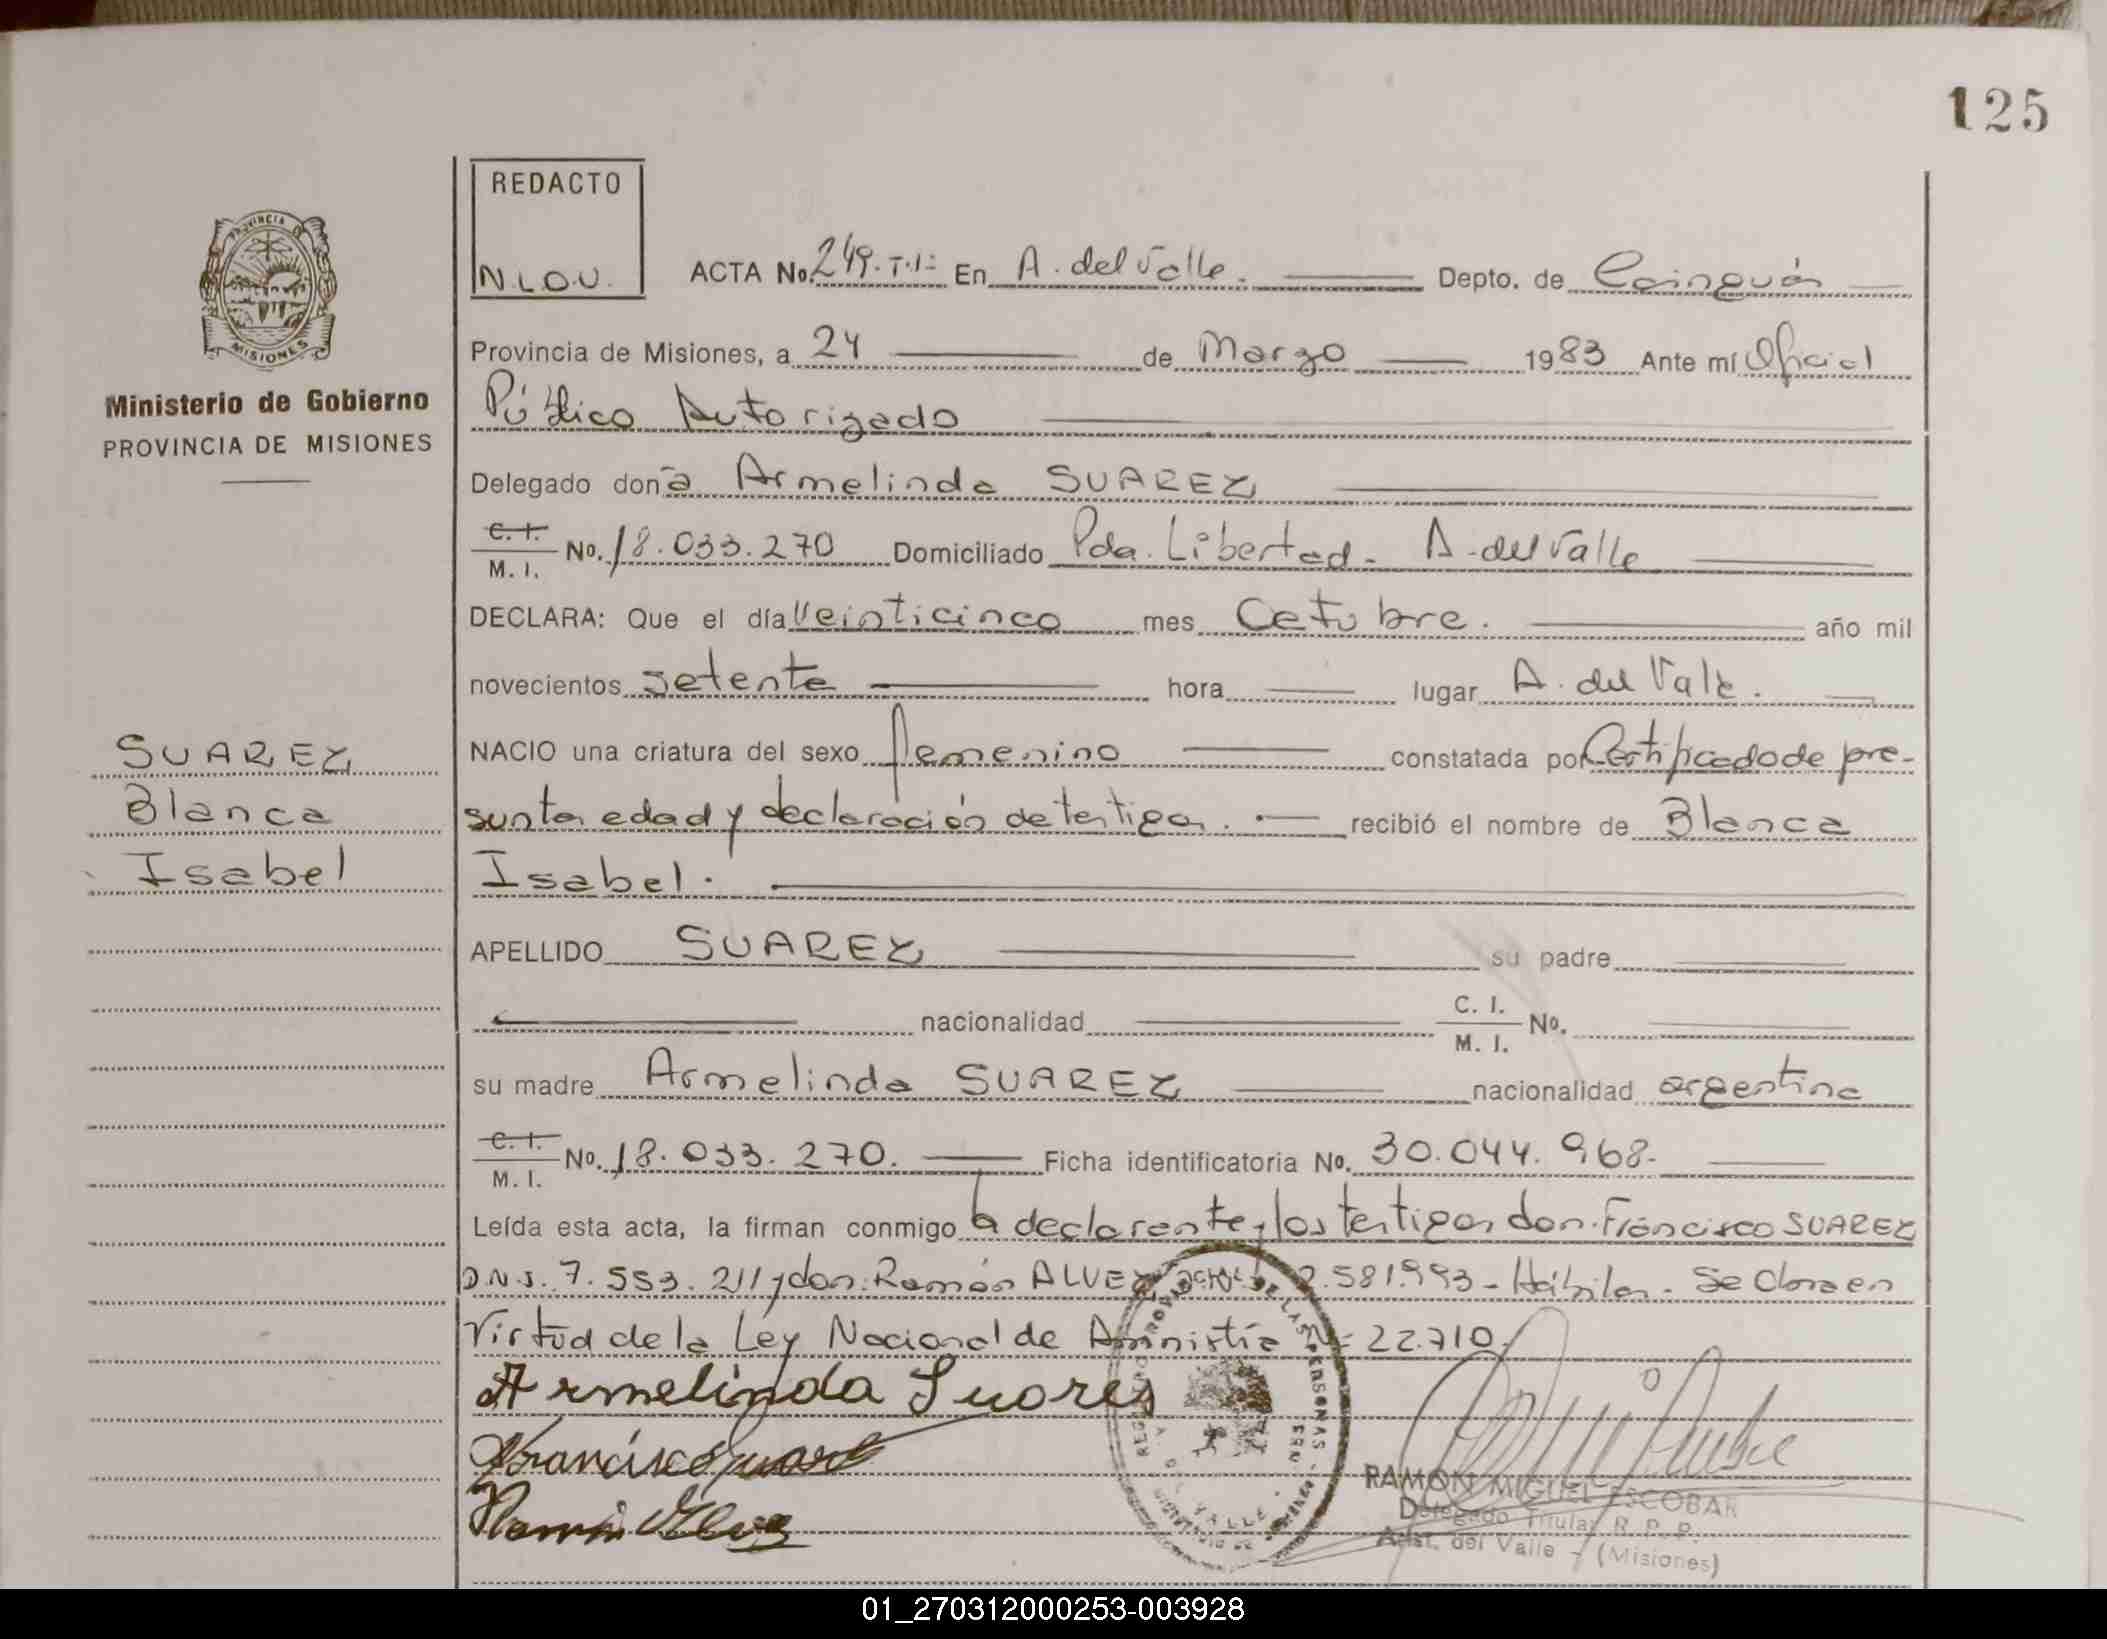 125
REDACTO
N.L.O.U.
PROVINCIA
MISIONES
Ministerio de Gobierno
PROVINCIA DE MISIONES
ACTA No. 249. T.I: En A. del Valle. Depto. de Cainguás
Provincia de Misiones, a 24 de Marzo 1983 Ante mí Oficial
Público Autorizado
Delegado doña Armelinda SUAREZ
C. I.
M. I. No. 18.033.270 Domiciliado Pda. Libertad - A. del Valle
DECLARA: Que el día Veinticinco mes Octubre. año mil
novecientos setenta hora lugar A. del Valle.
SUAREZ
Blanca
Isabel
NACIO una criatura del sexo femenino constatada por Certificado de pre-
sunta edad y declaración de testigos. recibió el nombre de Blanca
Isabel.
APELLIDO SUAREZ su padre
nacionalidad C. I.
M. I. No.
su madre Armelinda SUAREZ nacionalidad argentina
C. I.
M. I. No. 18.033.270. Ficha identificatoria No. 30.044.968-
Leída esta acta, la firman conmigo la declarante y los testigos don. Francisco SUAREZ
D.N.I. 7.553.211 y don: Ramón ALVEZ 2.581.993 - Hábiles - Se labra en
Virtud de la Ley Nacional de Amnistía Nº 22.710.
Armelinda Suares
Francisco Suarez
Ramón Alvez
RAMON MIGUEL ESCOBAR
Delegado Titular R. P. P.
Arist. del Valle - (Misiones)
01_270312000253-003928